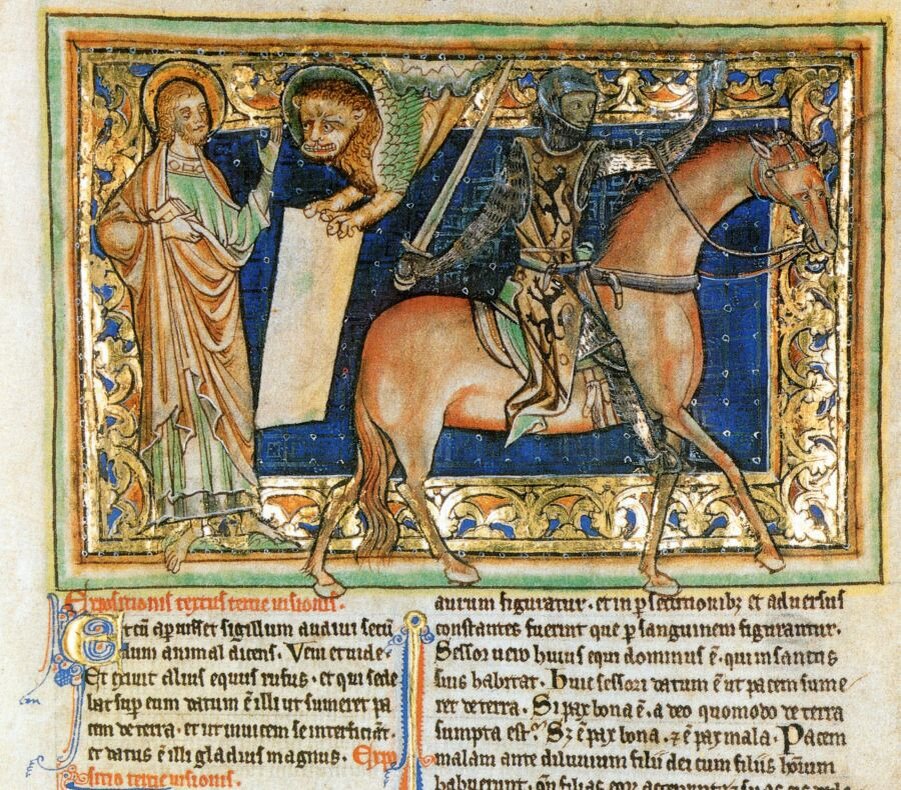 Expositionis textus tercie uisionis.
Et cū apuisset sigillum audiui secū
dum animal dicens. Veni et uide.
Et exiuit alius equus rufus. et qui sede
bat sup eum datum ē illi ut sumeret pa
cem de terra. et ut inuicem se interficiāt.
et datus ē illi gladius magnus. Expo
sitio tercie uisionis.
aurum figuratur. et in psecutionibȝ et aduersis
constantes fuerint que p sanguinem figurantur.
Sessor uero huius equi dominus ē. qui in sanctis
suis habitat. Huic sessori datum ē ut pacem sume
ret de terra. Si pax bona ē. a deo quomodo de terra
sumpta est. Sȝ ē pax bona. ⁊ ē pax mala. Pacem
malam ante diluuium filii dei cum filiis hoīum
habuerunt. qn̄ filias eoȝ acceperunt